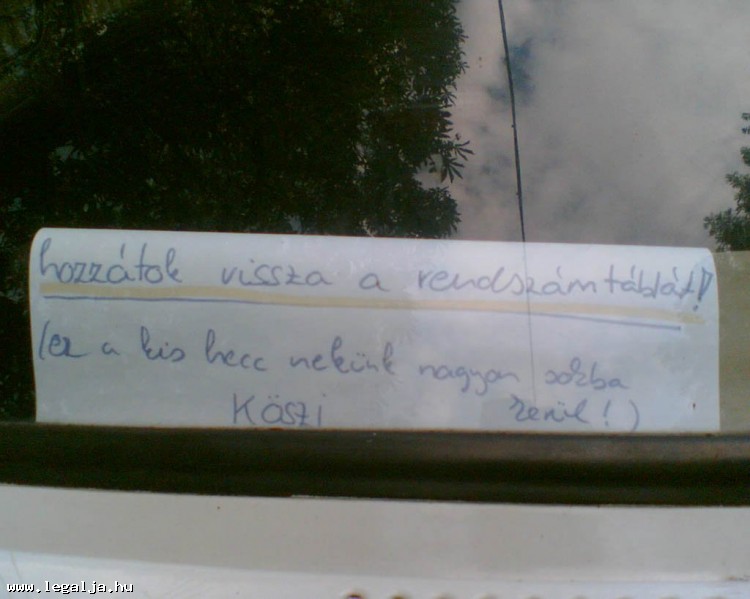 hozzátok vissza a rendszámtáblát!
(ez a kis hecc nekünk nagyon sokba
Köszi kerül!)
www.legalja.hu